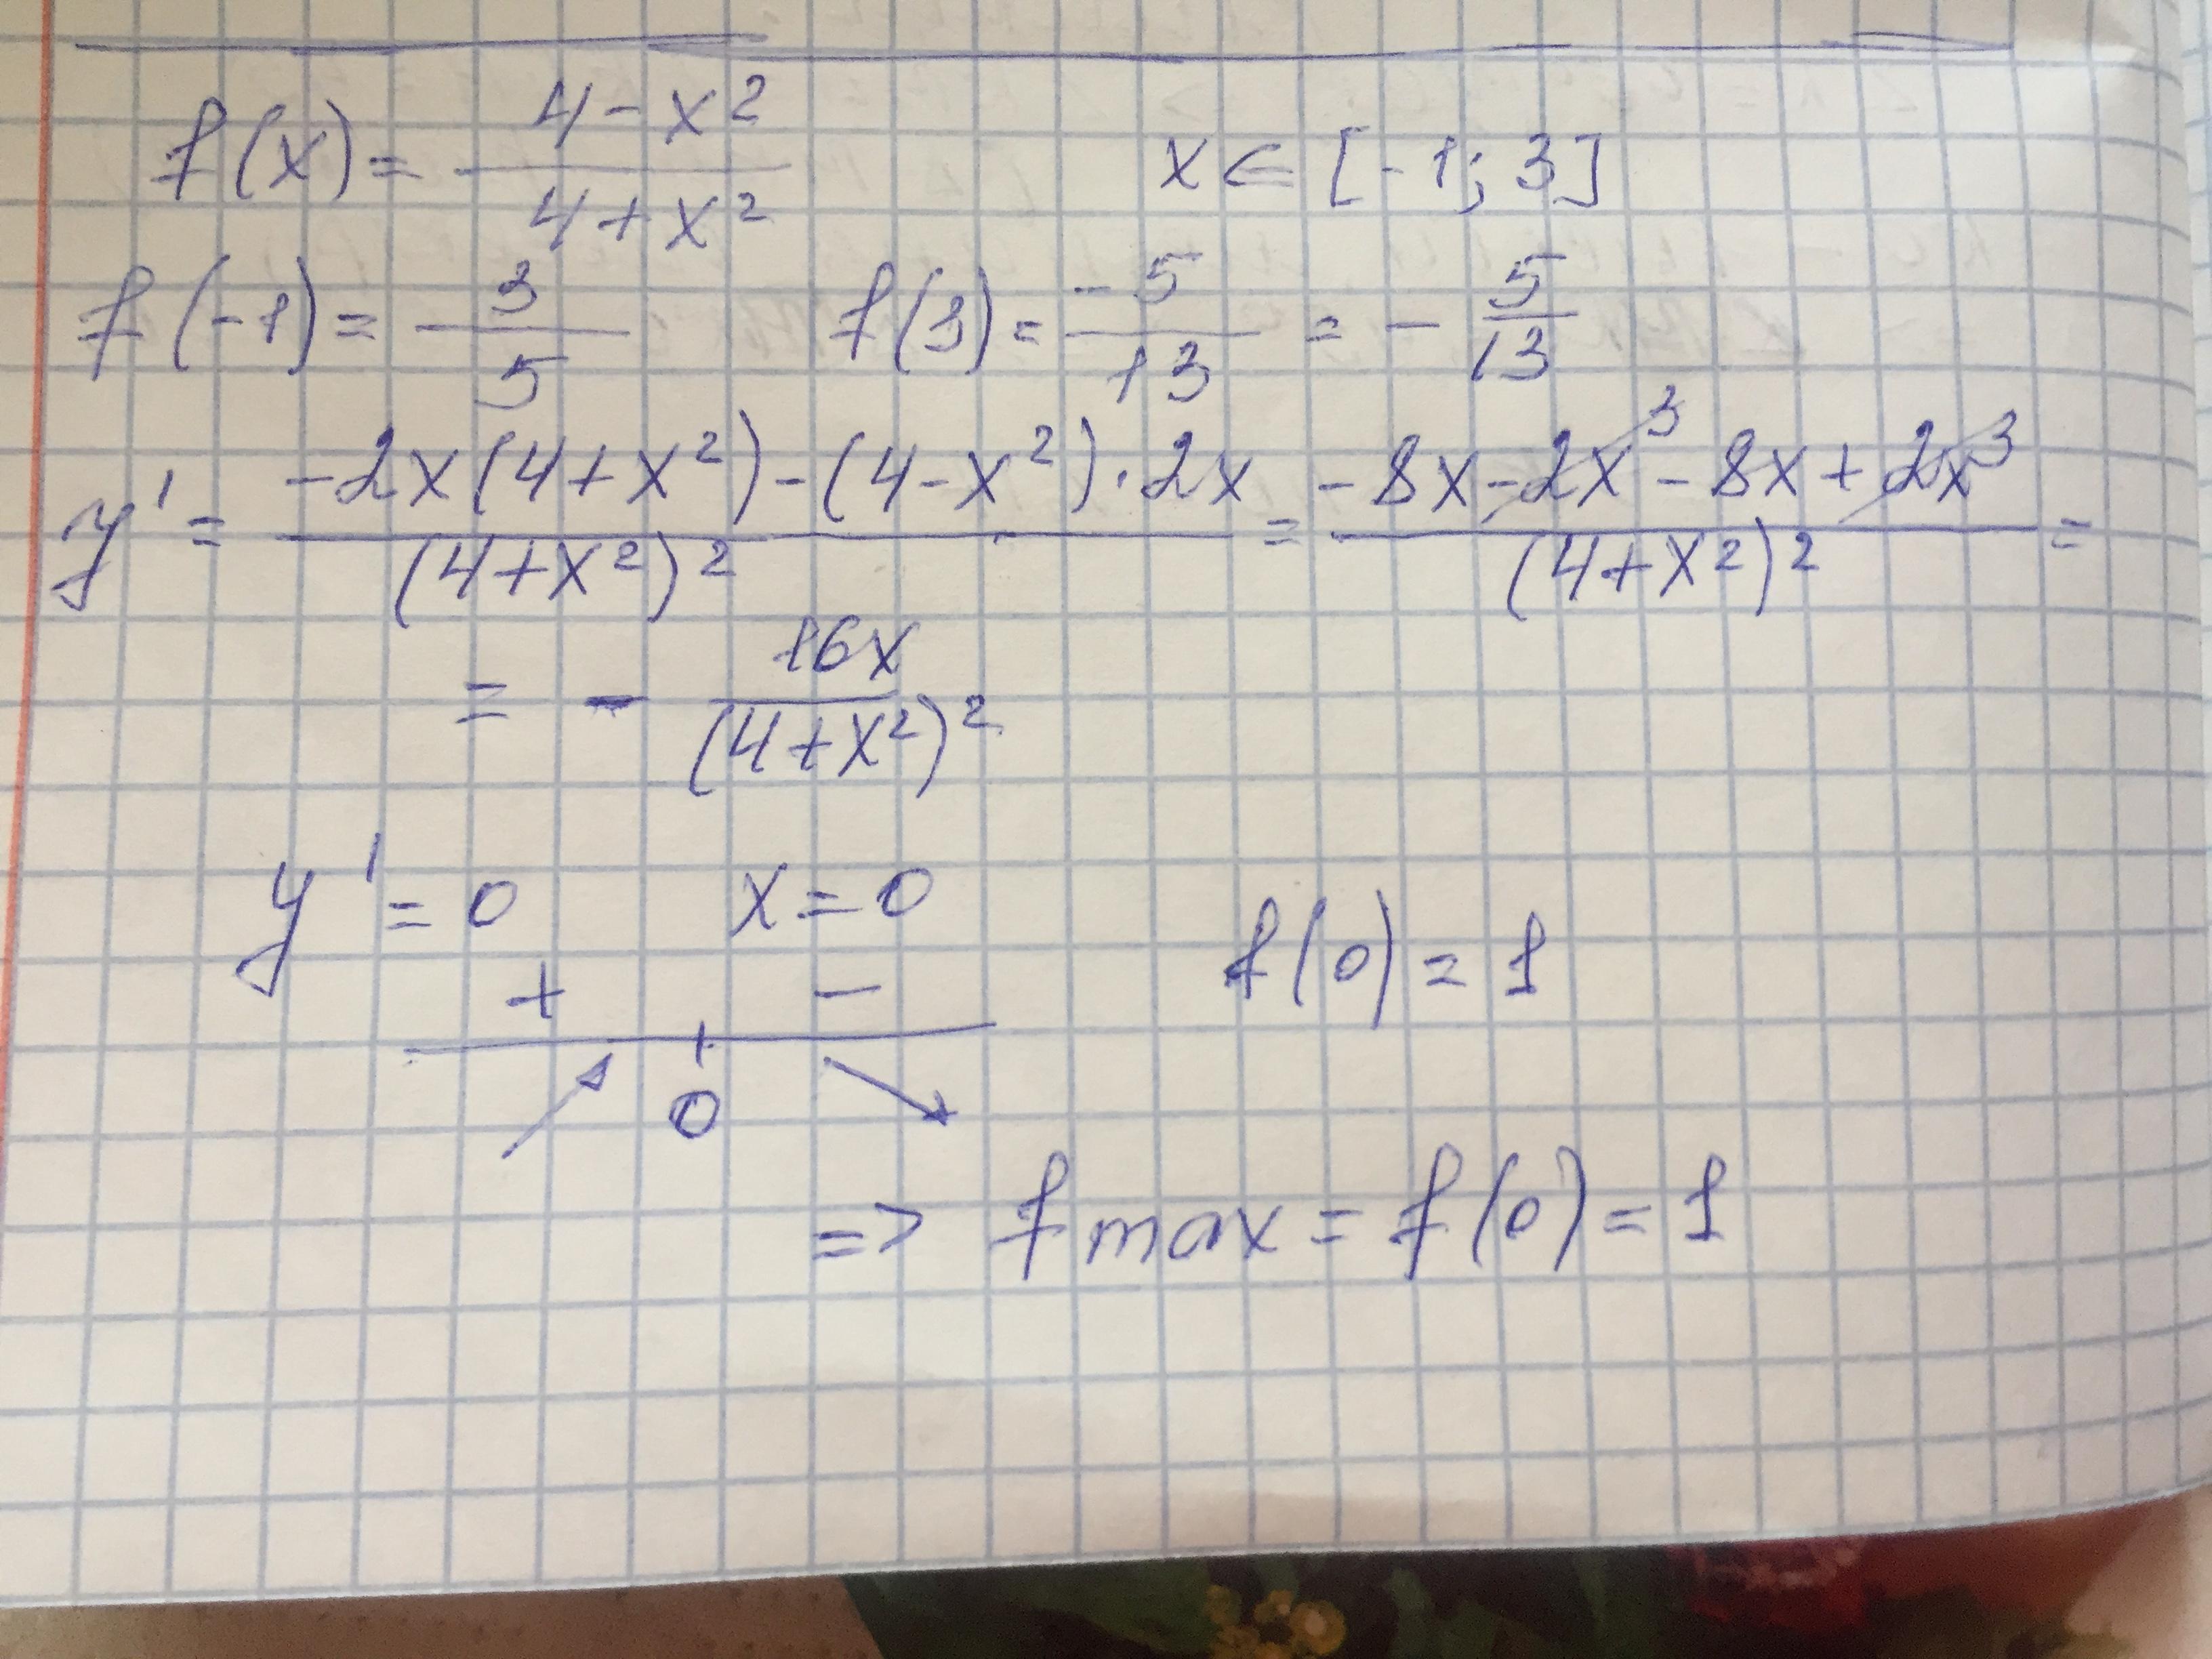 f(x) = (4 - x²)/(4 + x²)   x ∈ [-1; 3]
f(-1) = 3/5   f(3) = -5/13 = -5/13
y' = (-2x(4 + x²) - (4 - x²) · 2x)/(4 + x²)² = (-8x - 2x³ - 8x + 2x³)/(4 + x²)² =
= - 16x/(4 + x²)²
y' = 0   x = 0   f(0) = 1
+   -
0
=> f max = f(0) = 1